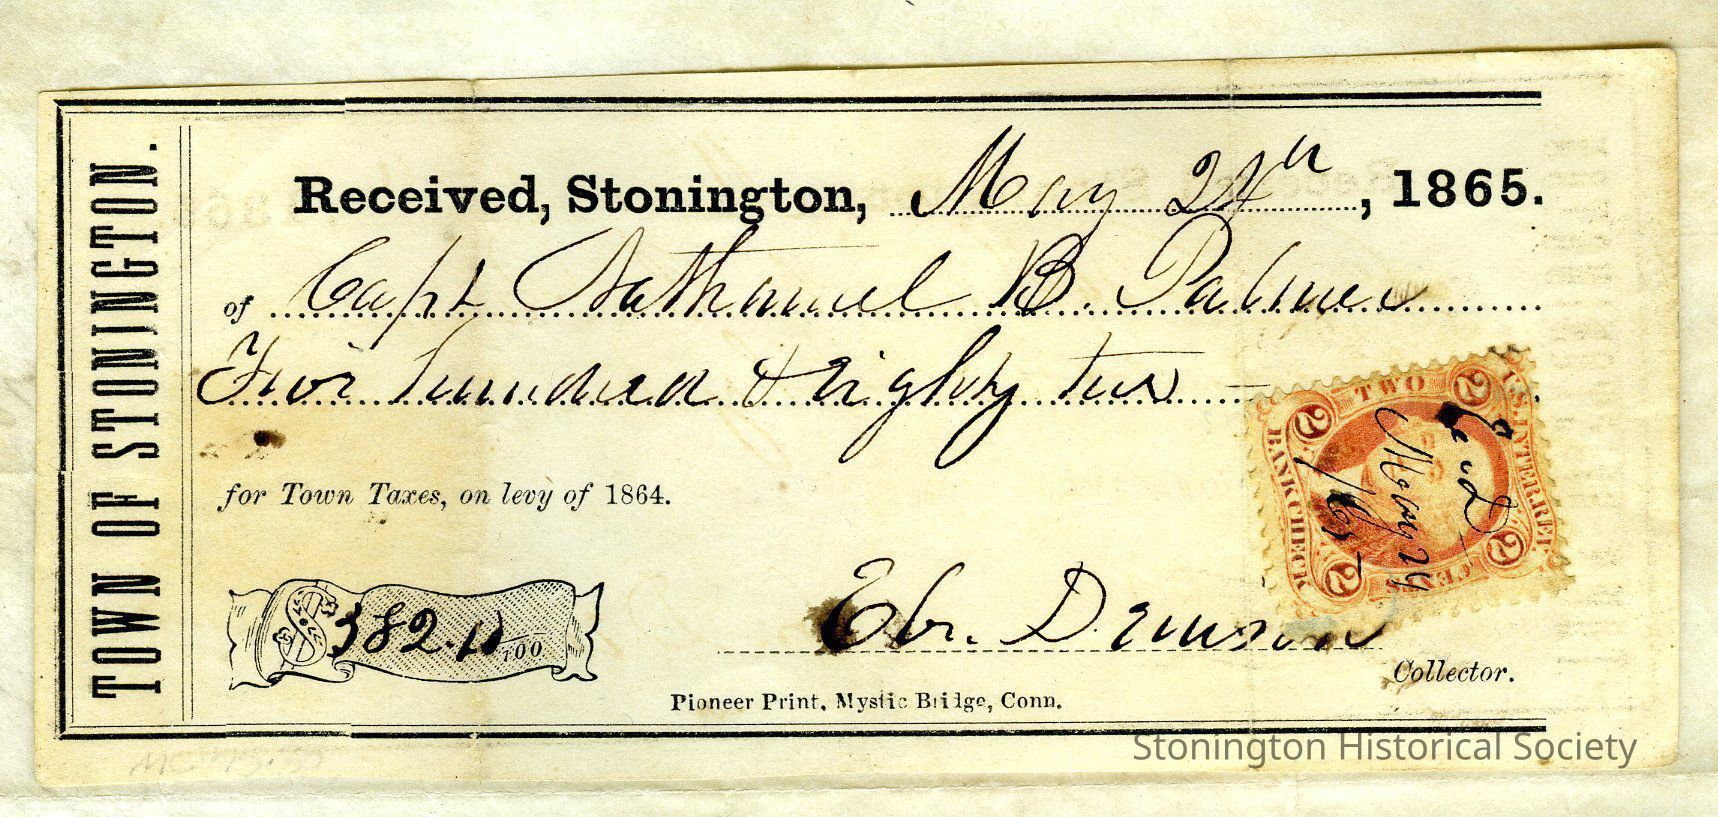 TOWN OF STONINGTON.
Received, Stonington, May 24th, 1865.
of Capt Nathaniel B. Palmer
Five hundred & eighty two
for Town Taxes, on levy of 1864.
$ 382.10/100
Ebr. Denison
Collector.
Pioneer Print, Mystic Bridge, Conn.
U.S. INTER. REV.
TWO
BANK CHECK
CENTS
2
2
2
2
E. D.
May 24
/65
Stonington Historical Society